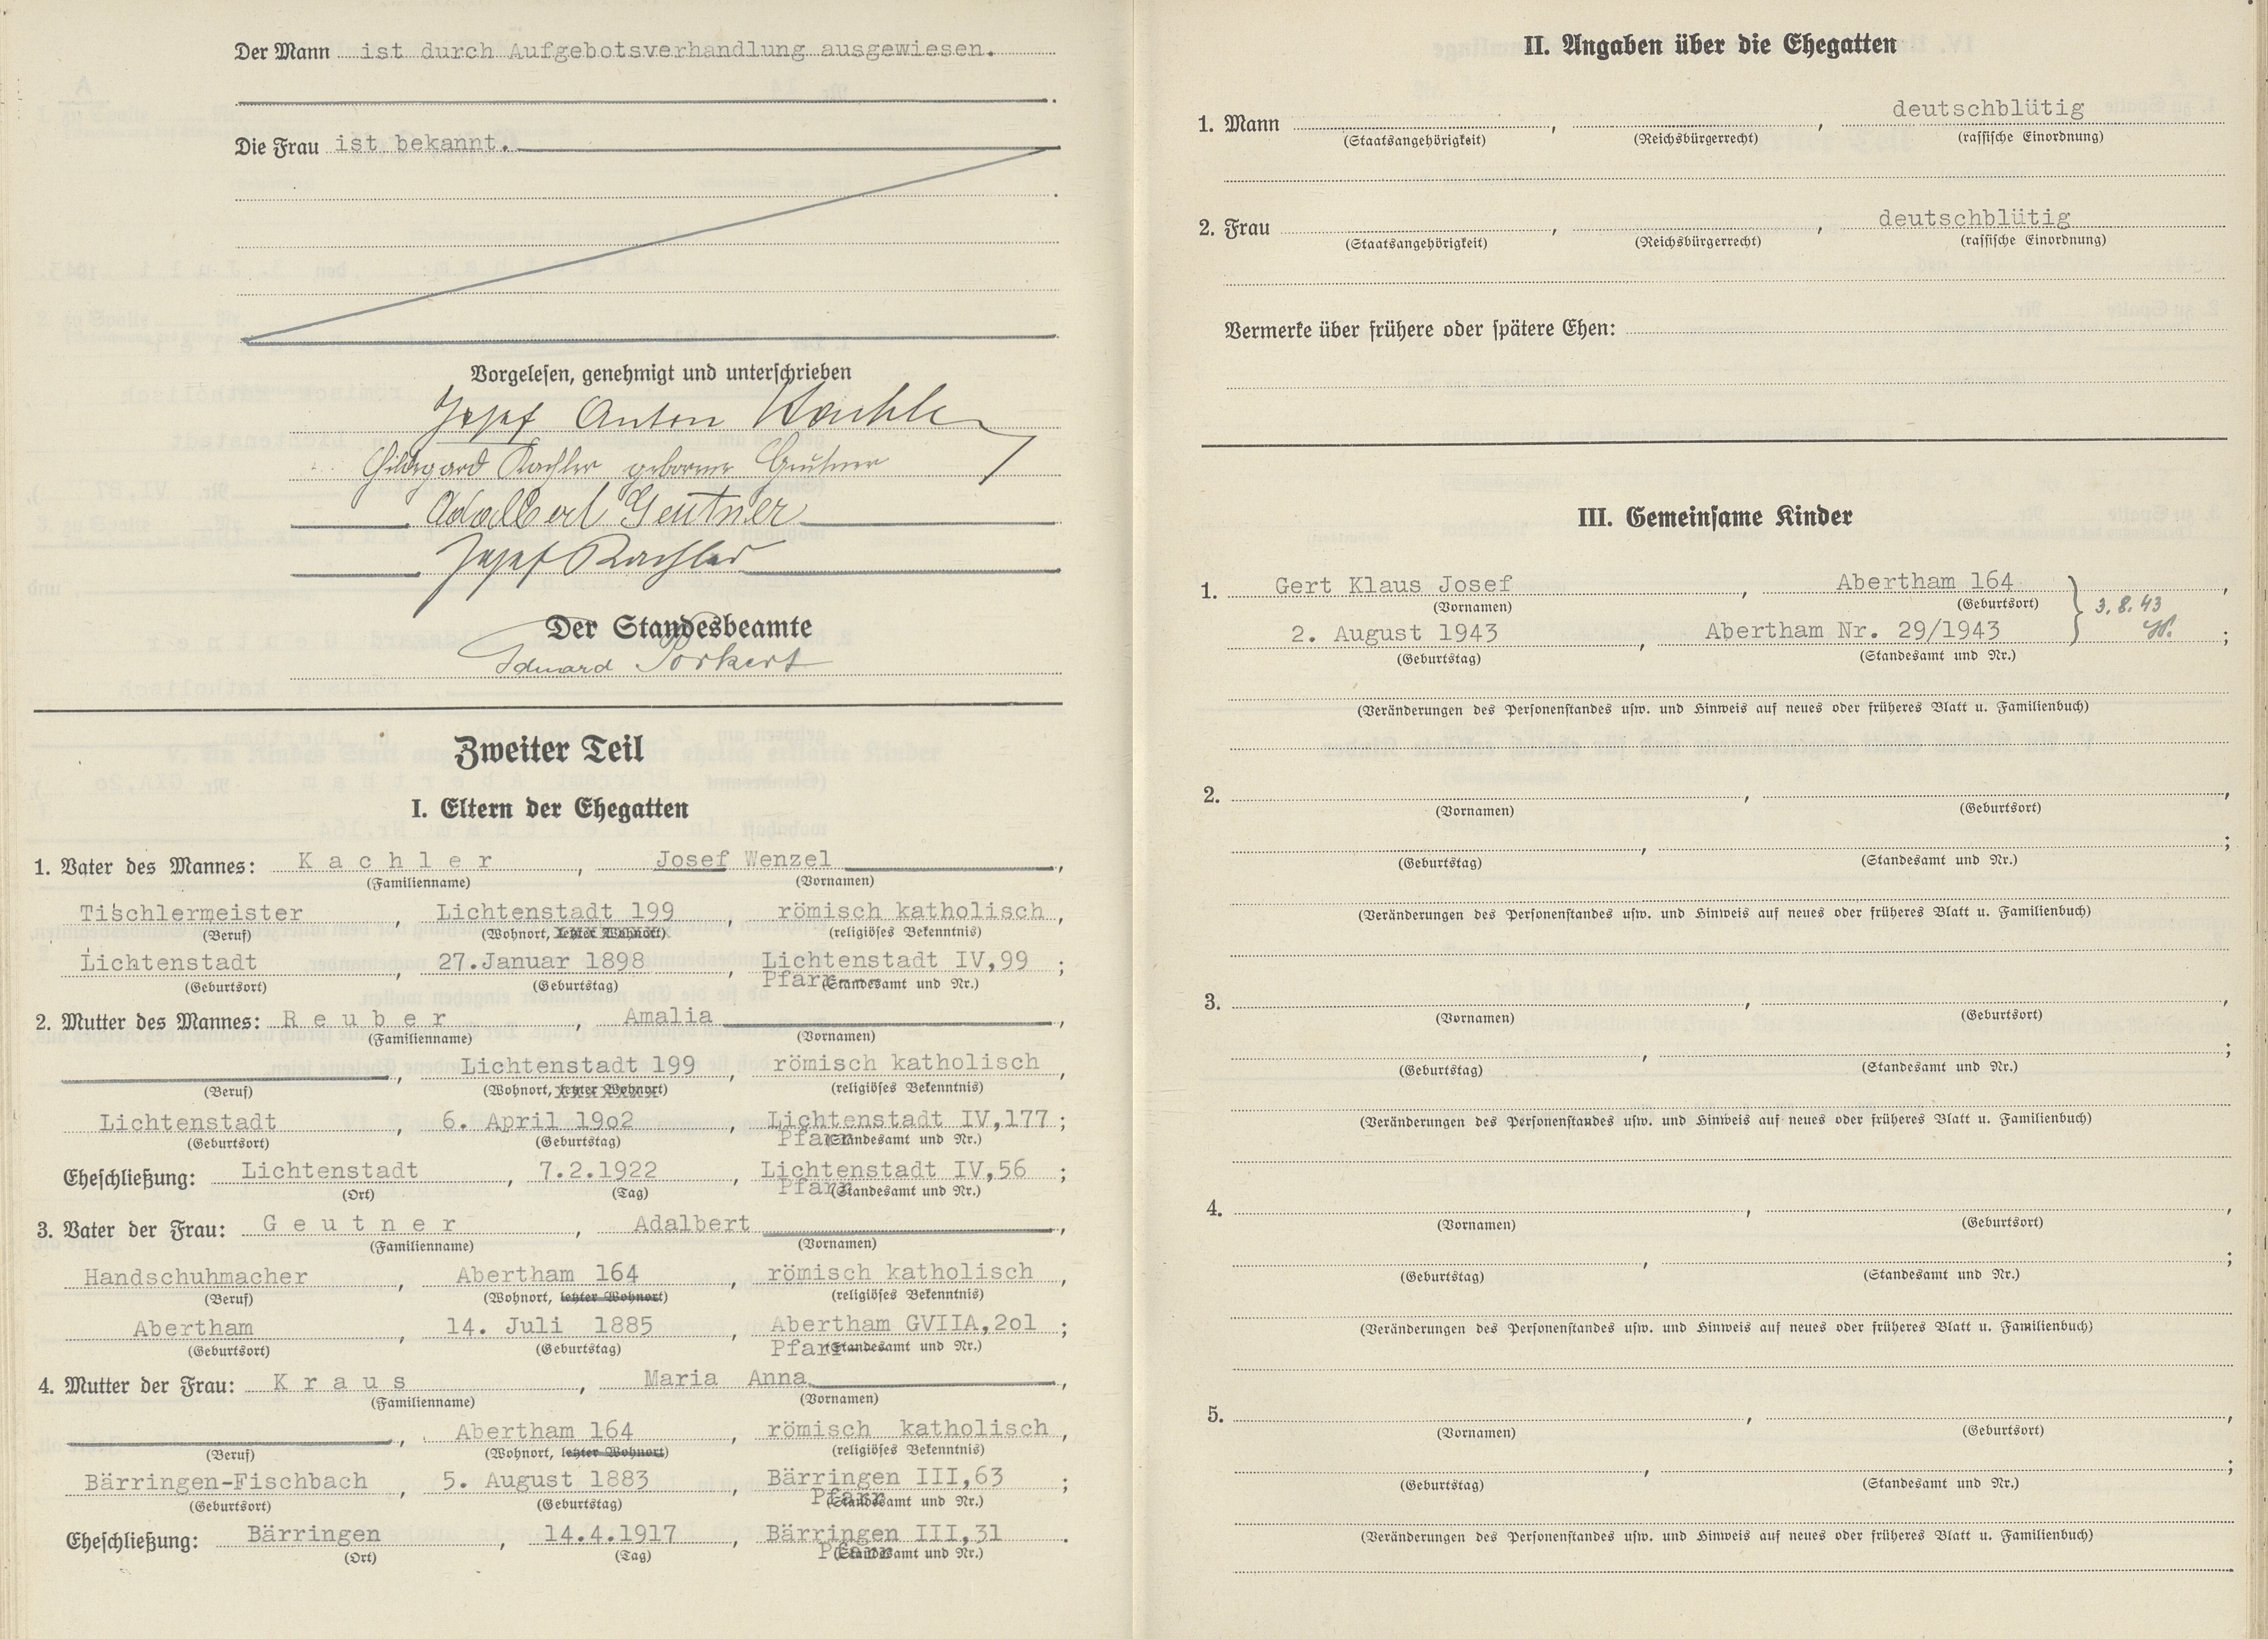 Der Mann ist durch Aufgebotsverhandlung ausgewiesen.
Die Frau ist bekannt.
Vorgelesen, genehmigt und unterschrieben
Josef Anton Kachler
Hildegard Kachler geborene Geutner
Adalbert Geutner
Josef Kachler
Der Standesbeamte
Eduard Porkert
Zweiter Teil
I. Eltern der Ehegatten
1. Vater des Mannes: Kachler, Josef Wenzel,
(Familienname) (Vornamen)
Tischlermeister, Lichtenstadt 199, römisch katholisch,
(Beruf) (Wohnort, letzter Wohnort) (religiöses Bekenntnis)
Lichtenstadt, 27.Januar 1898, Lichtenstadt IV,99;
(Geburtsort) (Geburtstag) Pfarr (Standesamt und Nr.)
2. Mutter des Mannes: Reuber, Amalia,
(Familienname) (Vornamen)
, Lichtenstadt 199, römisch katholisch,
(Beruf) (Wohnort, letzter Wohnort) (religiöses Bekenntnis)
Lichtenstadt, 6. April 19o2, Lichtenstadt IV,177;
(Geburtsort) (Geburtstag) Pfarr (Standesamt und Nr.)
Eheschließung: Lichtenstadt, 7.2.1922, Lichtenstadt IV,56;
(Ort) (Tag) Pfarr (Standesamt und Nr.)
3. Vater der Frau: Geutner, Adalbert,
(Familienname) (Vornamen)
Handschuhmacher, Abertham 164, römisch katholisch,
(Beruf) (Wohnort, letzter Wohnort) (religiöses Bekenntnis)
Abertham, 14. Juli 1885, Abertham GVIIA,2o1;
(Geburtsort) (Geburtstag) Pfarr (Standesamt und Nr.)
4. Mutter der Frau: Kraus, Maria Anna,
(Familienname) (Vornamen)
, Abertham 164, römisch katholisch,
(Beruf) (Wohnort, letzter Wohnort) (religiöses Bekenntnis)
Bärringen-Fischbach, 5. August 1883, Bärringen III,63;
(Geburtsort) (Geburtstag) Pfarr (Standesamt und Nr.)
Eheschließung: Bärringen, 14.4.1917, Bärringen III,31.
(Ort) (Tag) Pfarr (Standesamt und Nr.)
II. Angaben über die Ehegatten
1. Mann , , deutschblütig
(Staatsangehörigkeit) (Reichsbürgerrecht) (rassische Einordnung)
2. Frau , , deutschblütig
(Staatsangehörigkeit) (Reichsbürgerrecht) (rassische Einordnung)
Vermerke über frühere oder spätere Ehen:
III. Gemeinsame Kinder
1. Gert Klaus Josef, Abertham 164,
(Vornamen) (Geburtsort) 3.8.43
2. August 1943, Abertham Nr. 29/1943;
(Geburtstag) (Standesamt und Nr.)
(Veränderungen des Personenstandes usw. und Hinweis auf neues oder früheres Blatt u. Familienbuch)
2. , ,
(Vornamen) (Geburtsort)
, ;
(Geburtstag) (Standesamt und Nr.)
(Veränderungen des Personenstandes usw. und Hinweis auf neues oder früheres Blatt u. Familienbuch)
3. , ,
(Vornamen) (Geburtsort)
, ;
(Geburtstag) (Standesamt und Nr.)
(Veränderungen des Personenstandes usw. und Hinweis auf neues oder früheres Blatt u. Familienbuch)
4. , ,
(Vornamen) (Geburtsort)
, ;
(Geburtstag) (Standesamt und Nr.)
(Veränderungen des Personenstandes usw. und Hinweis auf neues oder früheres Blatt u. Familienbuch)
5. , ,
(Vornamen) (Geburtsort)
, ;
(Geburtstag) (Standesamt und Nr.)
(Veränderungen des Personenstandes usw. und Hinweis auf neues oder früheres Blatt u. Familienbuch)